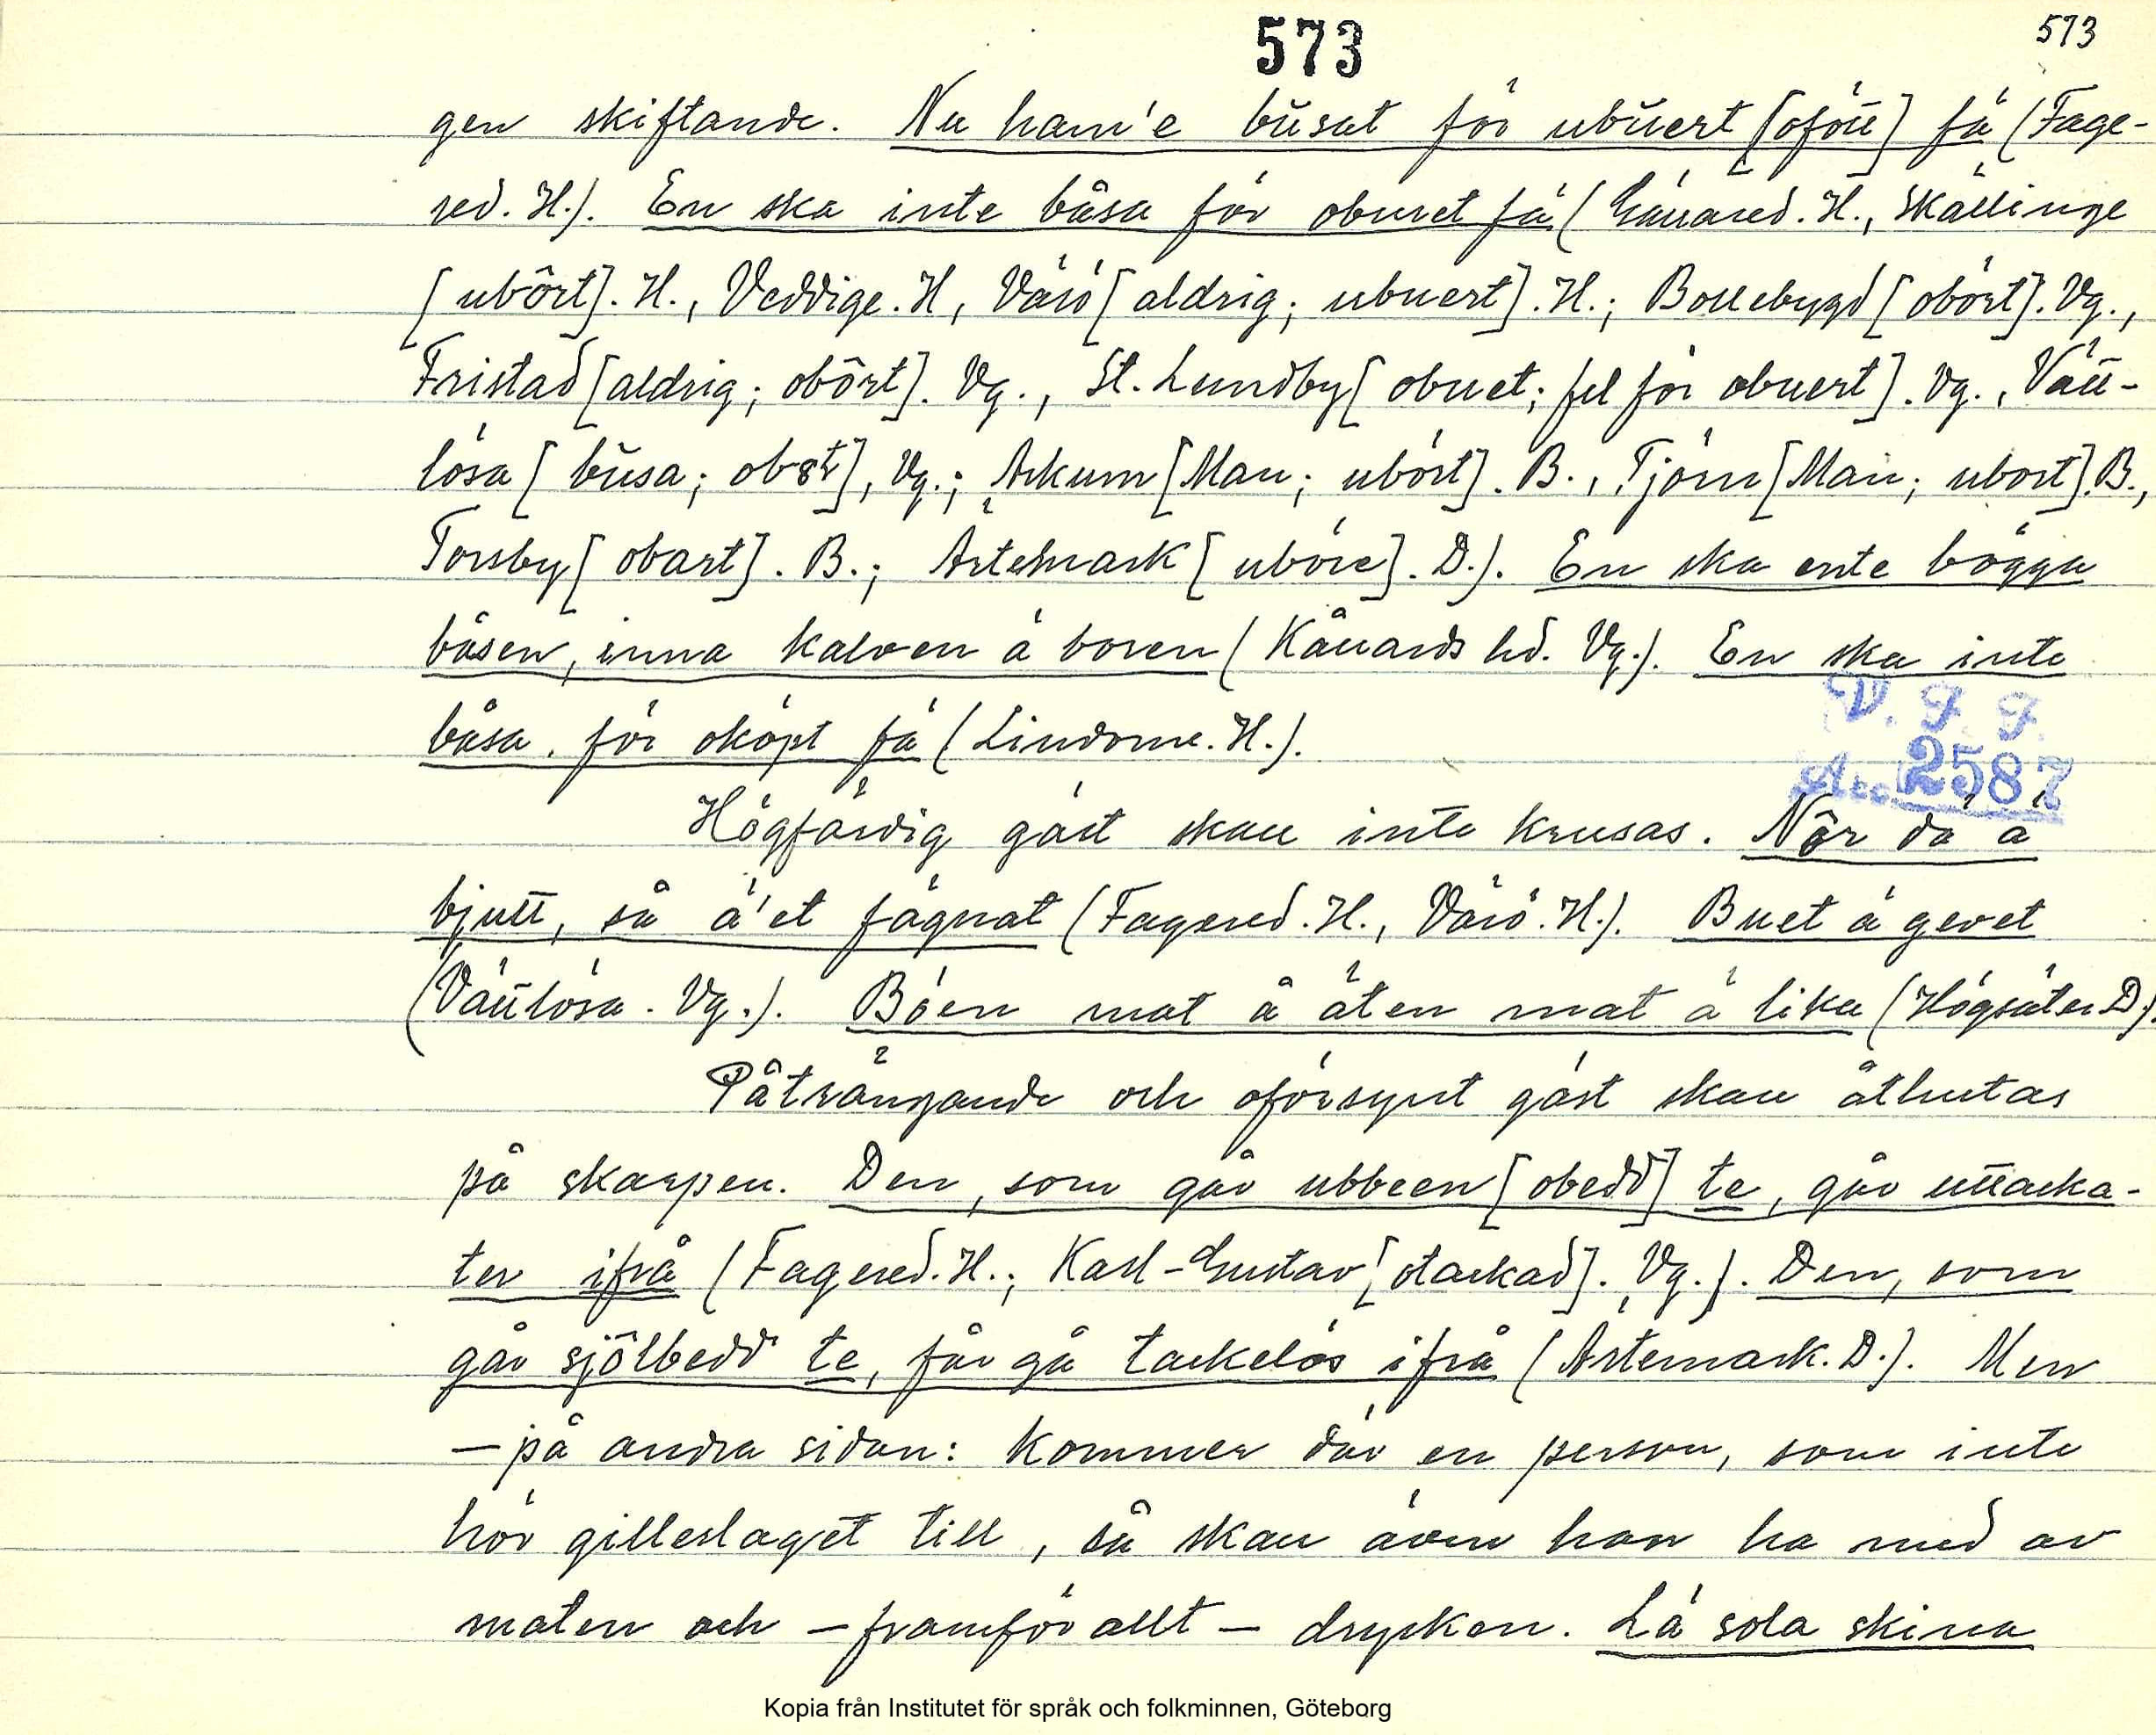 573
573
gen skiftande. Nu ham'e båsat för ubuert [ofött] fä (Fage-
red. H.). En ska inte båsa för oburet fä (Gunnared. H., Skällinge
[ubôrt]. H., Veddige. H, Värö [aldrig; ubuert]. H.; Bollebygd [obört]. Vg.,
Fristad [aldrig; obôrt]. Vg., St. Lundby [obuet; fel för obuert]. Vg., Vätt-
lösa [båsa; obört], Vg.; Askum [Man; ubört]. B., Tjörn [Man; ubort]. B.,
Torsby [obart]. B.; Ärtemark [uböre]. D.). En ska ente bögga
båsen, inna kalven ä boren (Kållands hd. Vg.). En ska inte
båsa för oköpt fä (Lindome. H.).
V. F. F.
Acc. 2587
Högfärdig gäst skall inte krusas. När dä ä
bjutt, så ä'et fägnat (Fagered. H., Värö. H.). Buet ä gevet
(Vättlösa. Vg.). Böen mat å äten mat ä lika (Högsäter. D.).
Påträngande och oförsynt gäst skall åthutas
på skarpen. Den, som går ubbeen [obedd] te, går uttacka-
ter ifrå (Fagered. H.; Karl-Gustav [otackad]. Vg.). Den, som
går sjôlbedd te, får gå tackelös ifrå (Ärtemark. D.). Men
– på andra sidan: kommer där en person, som inte
hör gilleslaget till, så skall även han ha med av
maten och – framför allt – drycken. Lä sola skina
Kopia från Institutet för språk och folkminnen, Göteborg